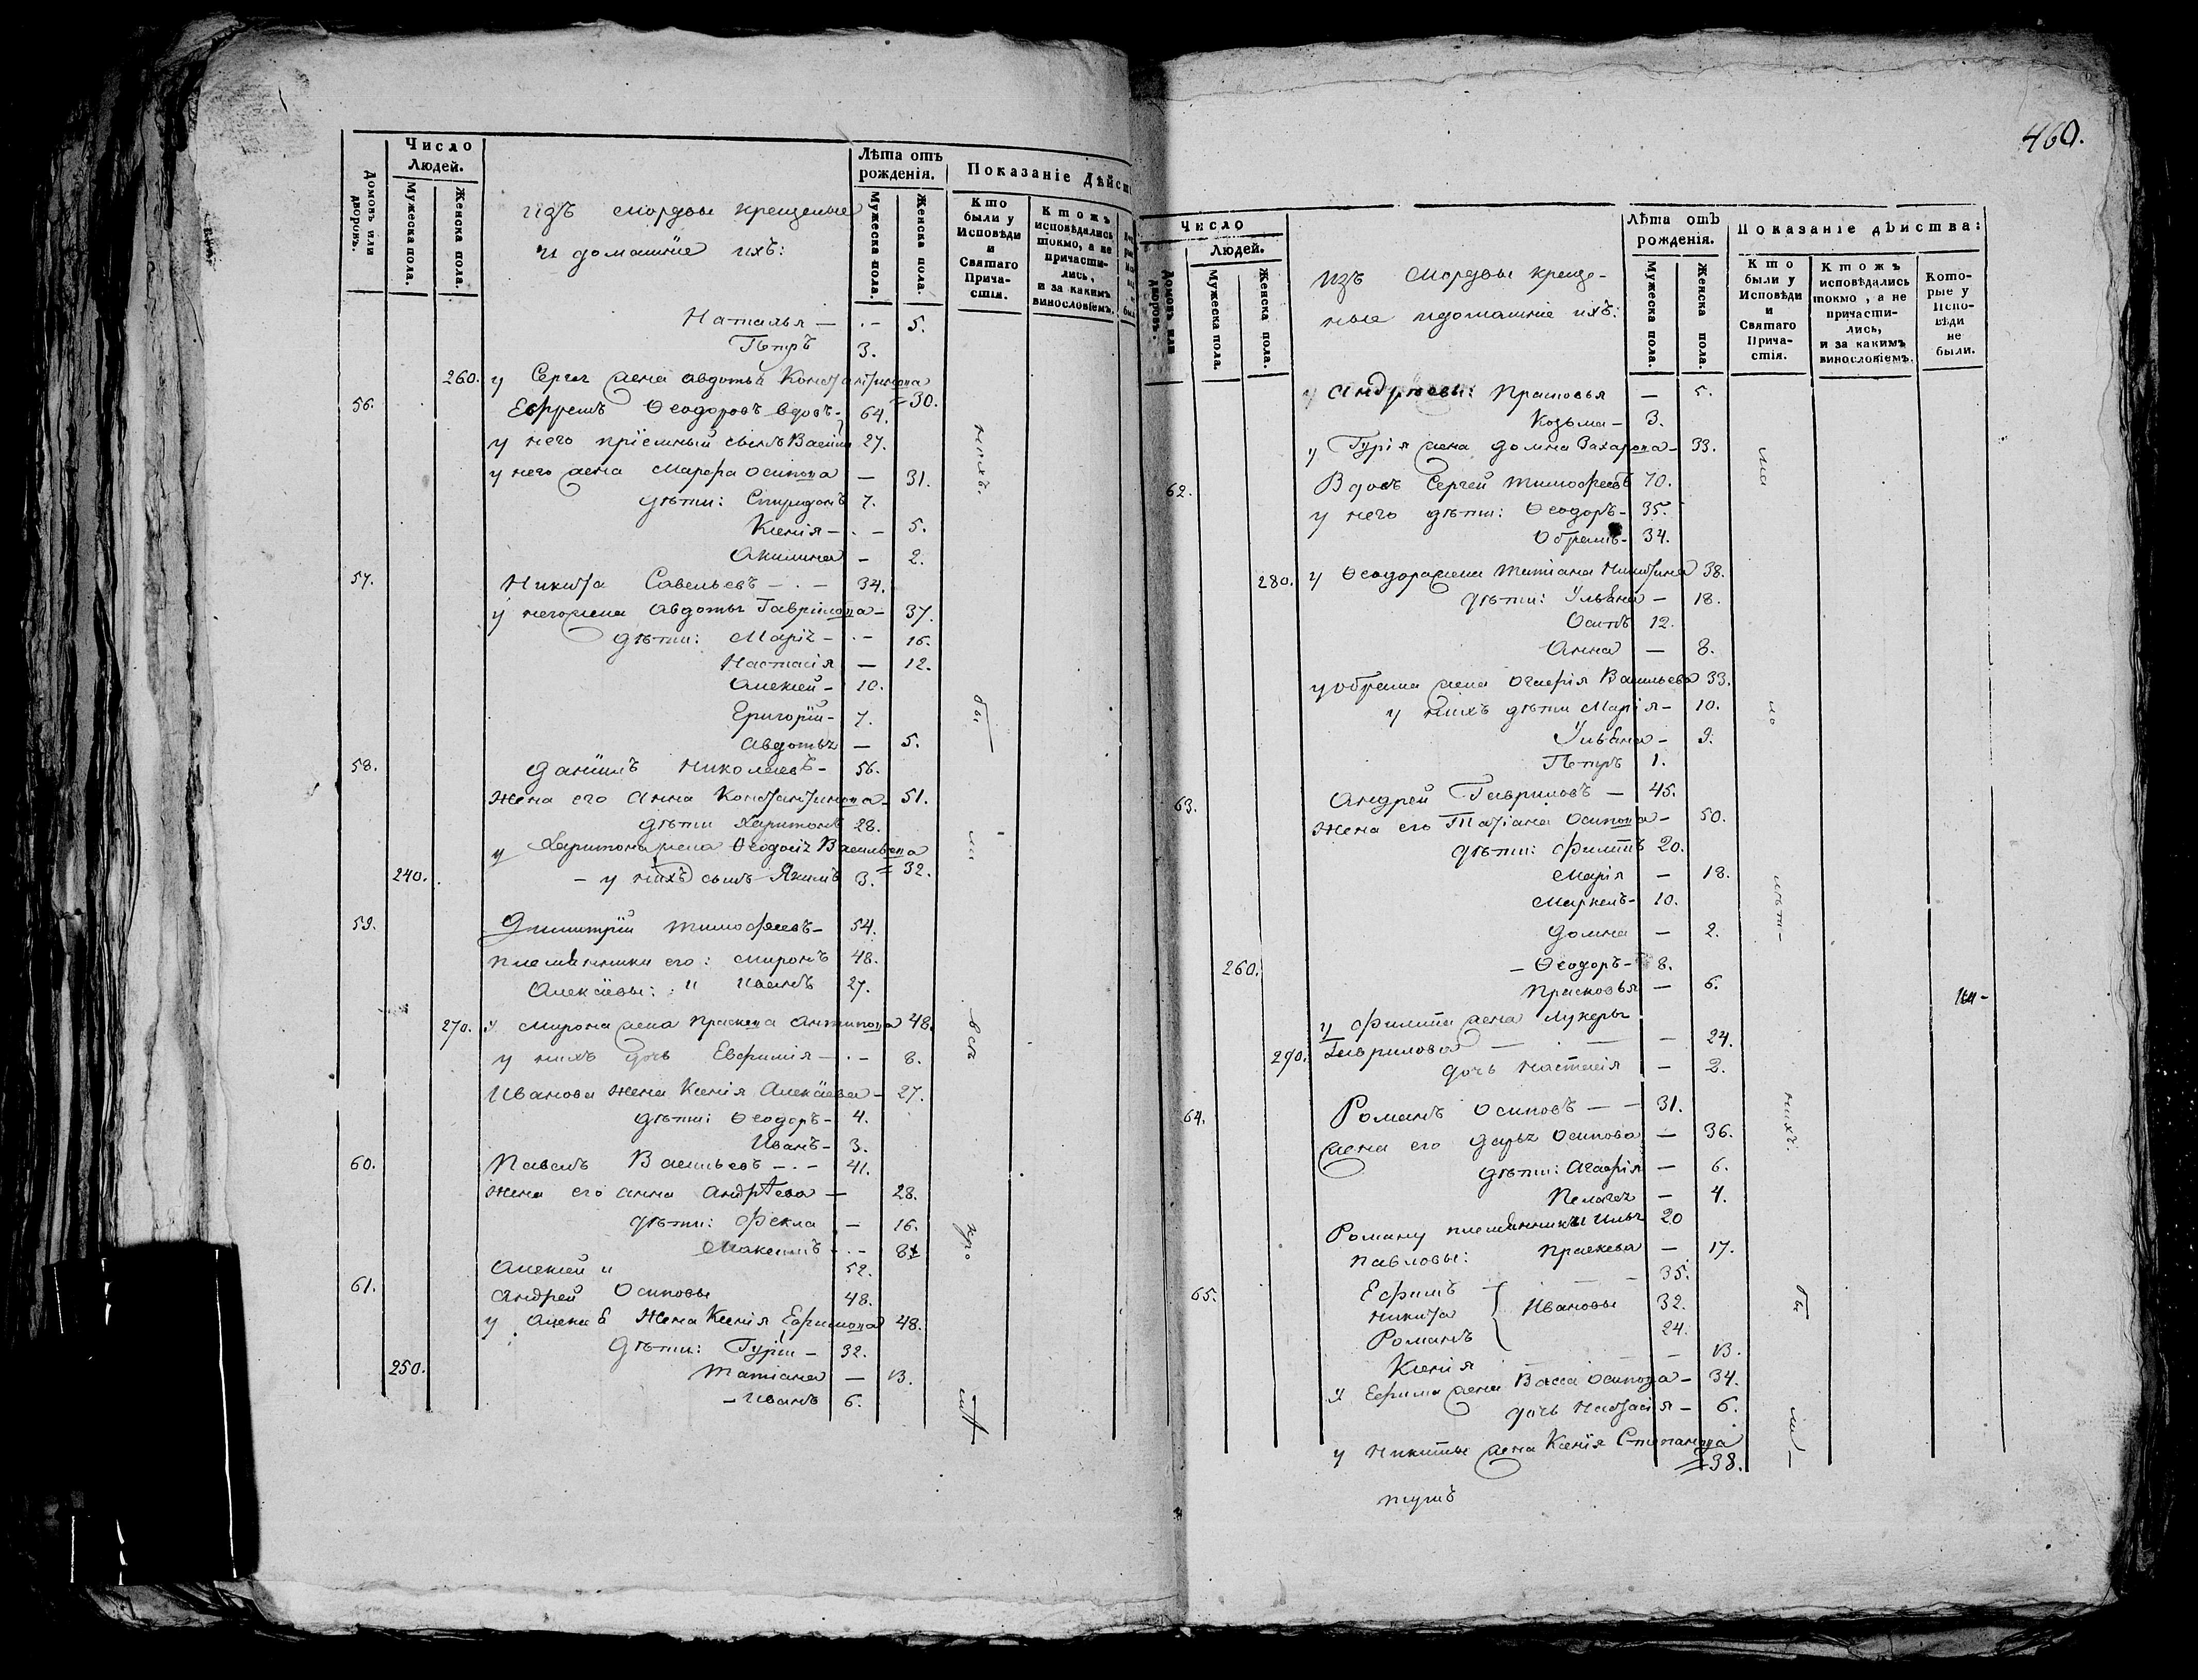 Домовъ или дворовъ.
Число Людей.
Мужеска пола.
Женска пола.
изъ мордвы крещеные
и домашніе ихъ:
Лѣта отъ рожденія.
Мужеска пола.
Женска пола.
Показаніе дѣйст
Кто были у Исповѣди и Святаго Прича-стія.
Ктожъ исповѣдались токмо, а не причасти-лись, и за какимъ винословіемъ.
Наталья — 5.
Петръ 3.
260. у Сергея жена Авдотья Константинова 30.
56. Ефремъ Ѳеодоровъ вдовъ 64.
у него пріемный сынъ 27.
у него жена Марфа Осипова — 31.
дѣти: Спиридонъ 7.
Ксенія — 5.
Акилина — 2.
57. Никита Савельевъ — 34.
у него жена Авдотья Гаврилова — 37.
дѣти: Марія — 16.
Настасія — 12.
Алексей — 10.
Григорій — 7.
Авдотья — 5.
58. Даніилъ Николаевъ — 56.
Жена его Анна Константинова 51.
дѣти Харитонъ 28.
у Харитона жена Ѳеодосія Васильева 32.
240. — у нихъ сынъ Якимъ 3.
59. Димитрій Тимофеевъ — 54.
племянники его: Миронъ 48.
Алексѣевы: и Иванъ 27.
270. у Мирона жена Праскева Антипова 48.
у нихъ дочь Евфимія — 8.
Иванова жена Ксенія Алексѣева — 27.
дѣти: Ѳеодоръ — 4.
Иванъ — 3.
60. Павелъ Васильевъ — 41.
Жена его Анна Андрѣева — 28.
дѣти: Фекла — 16.
Максимъ — 8
Алексей и 52.
61. Андрей Осиповы 48.
у Алексѣя Жена Ксенія Ефимова 48.
Дѣти: Гурій — 32.
250. Татіана — 13.
— Иванъ 6.
нихъ.
бы
ли
всѣ
460.
Домовъ или дворовъ.
Число Людей.
Мужеска пола.
Женска пола.
изъ Мордвы креще-
ные и домашніе ихъ:
Лѣта отъ рожденія.
Мужеска пола.
Женска пола.
Показаніе дѣйства:
Кто были у Исповѣди и Святаго Прича-стія.
Ктожъ исповѣдались токмо, а не причасти-лись, и за какимъ винословіемъ.
Кото-рые у Испо-вѣди не были.
у Андрѣевы: Прасковья — 5.
Козьма — 3.
у Гурія жена Домна Захарова — 33.
62. Вдовъ Сергей Тимофеевъ 70.
у него дѣти: Ѳеодоръ — 35.
Обрамъ — 34.
280. у Ѳеодора жена Татіана Никитина 38.
дѣти: Ульяна — 18.
Осипъ 12.
Анна — 8.
у Обрама жена Агафія Васильева 33.
у нихъ дѣти Марія — 10.
Ульяна — 9.
Петръ 1.
63. Андрей Гавриловъ — 45.
Жена его Татіана Осипова — 50.
дѣти: Филипъ 20.
Марія — 18.
Маркелъ — 10.
Домна — 2.
260. — Ѳеодоръ — 8.
Прасковья — 6.
у Филипа жена Лукерья
290. Гаврилова — 24.
дочь Настасія — 2.
64. Романъ Осиповъ — 31.
Жена его Дарья Осипова — 36.
дѣти: Агафія — 6.
Пелагея — 4.
Роману племянники Илья 20
Павловы: Праскева — 17.
65. Ефимъ — 35.
Никита } Ивановы 32.
Романъ 24.
Ксенія — 13.
у Ефима жена Васса Осипова — 34.
дочь Настасія — 6.
у Никиты жена Ксенія Степанова 38.
нихъ.
бы
ли —